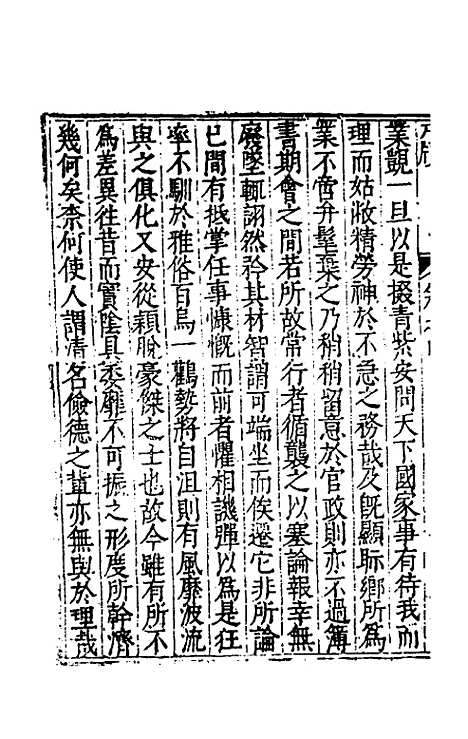 業覬一旦以是掇青紫安問天下國家事有待我而
理而姑敝精勞神於不急之務哉及旣顯眎鄉所為
業不啻弁髦棄之乃稍稍留意於官政則亦不過簿
書期會之間若所故常行者循襲之以塞論報幸無
廢墜輒詡然矜其材智謂可端坐而俟遷它非所論
已間有抵掌任事慷慨而前者懼相譏彈以為是狂
率不馴於雅俗百鳥一鸛勢將自沮則有風靡波流
與之俱化又安從穎脫豪傑之士也故今雖有所不
為差異往昔而實陰具委靡不可振之形度所幹濟
幾何矣柰何使人謂清名儉德之輩亦無與於理哉